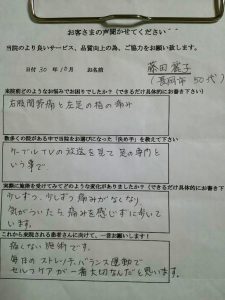 お客さまの声聞かせてください
当院のより良いサービス、品質向上の為、ご協力をお願い致します。
日付 30年 10月 お名前 藤田 震子
(長岡市 50代)
来院前どのようなお悩みでお困りでしたか?(できるだけ具体的にお書き下さい)
右股関節痛と左足の指の痛み
数多くの院がある中で当院をお選びになった「決め手」を教えて下さい
ケーブルTVの放送を見て 足の専門と
いう事で
実際に施術を受けてみてどのような変化がありましたか?(できるだけ具体的にお書き下さい)
少しずつ、少しずつ痛みがなくなり、
気がついたら痛みを感じずに歩いて
います。
これから来院される患者さんに向けて、一言お願いします!
痛くない施術です。
毎日のストレッチ、バランス運動で
セルフケアが一番大切なんだと思います。